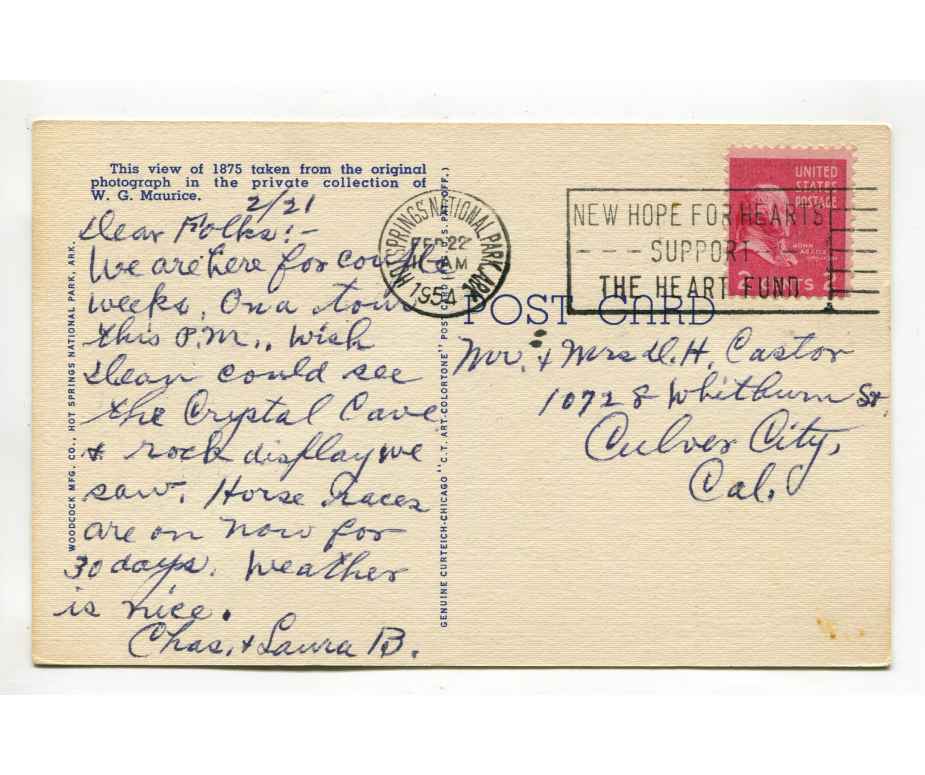 This view of 1875 taken from the original
photograph in the private collection of
W. G. Maurice.
2/21
Dear Folks:-
We are here for couple
weeks. On a tour
this P.M., wish
Dean could see
the Crystal Cave
& rock display we
saw. Horse races
are on now for
30 days. Weather
is nice.
Chas. & Laura B.
WOODCOCK MFG. CO., HOT SPRINGS NATIONAL PARK, ARK.
GENUINE CURTEICH-CHICAGO "C.T. ART-COLORTONE" POST CARD (REG. U.S. PAT. OFF.)
HOT SPRINGS NATIONAL PARK, ARK.
FEB 22
AM
1954
NEW HOPE FOR HEARTS
SUPPORT
THE HEART FUND
UNITED
STATES
POSTAGE
JOHN
ADAMS
2 CENTS 2
POST CARD
Mr. & Mrs D. H. Castor
10728 Whitburn St.
Culver City,
Cal.